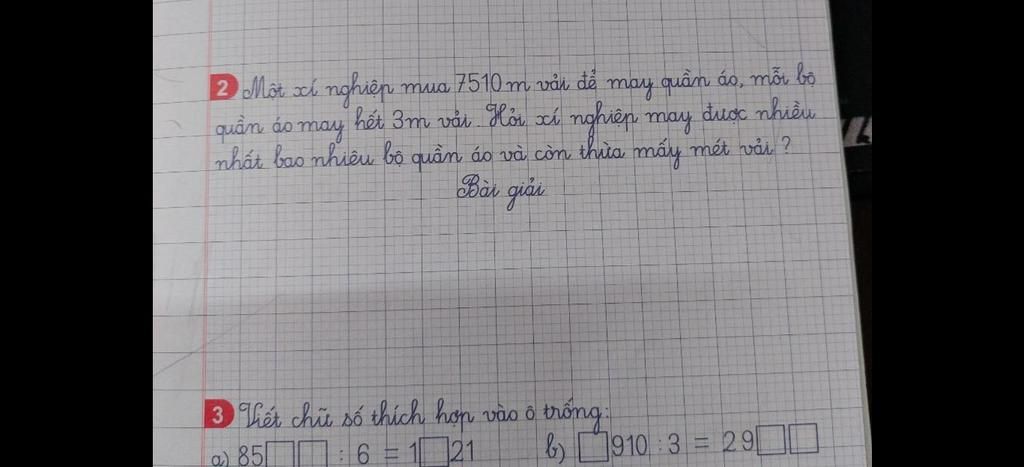 2 Một xí nghiệp mua 7510 m vải để may quần áo, mỗi bộ
quần áo may hết 3m vải. Hỏi xí nghiệp may được nhiều
nhất bao nhiêu bộ quần áo và còn thừa mấy mét vải ?
Bài giải
3 Viết chữ số thích hợp vào ô trống:
a) 85□□ : 6 = 1□21 b) □910 : 3 = 29□□